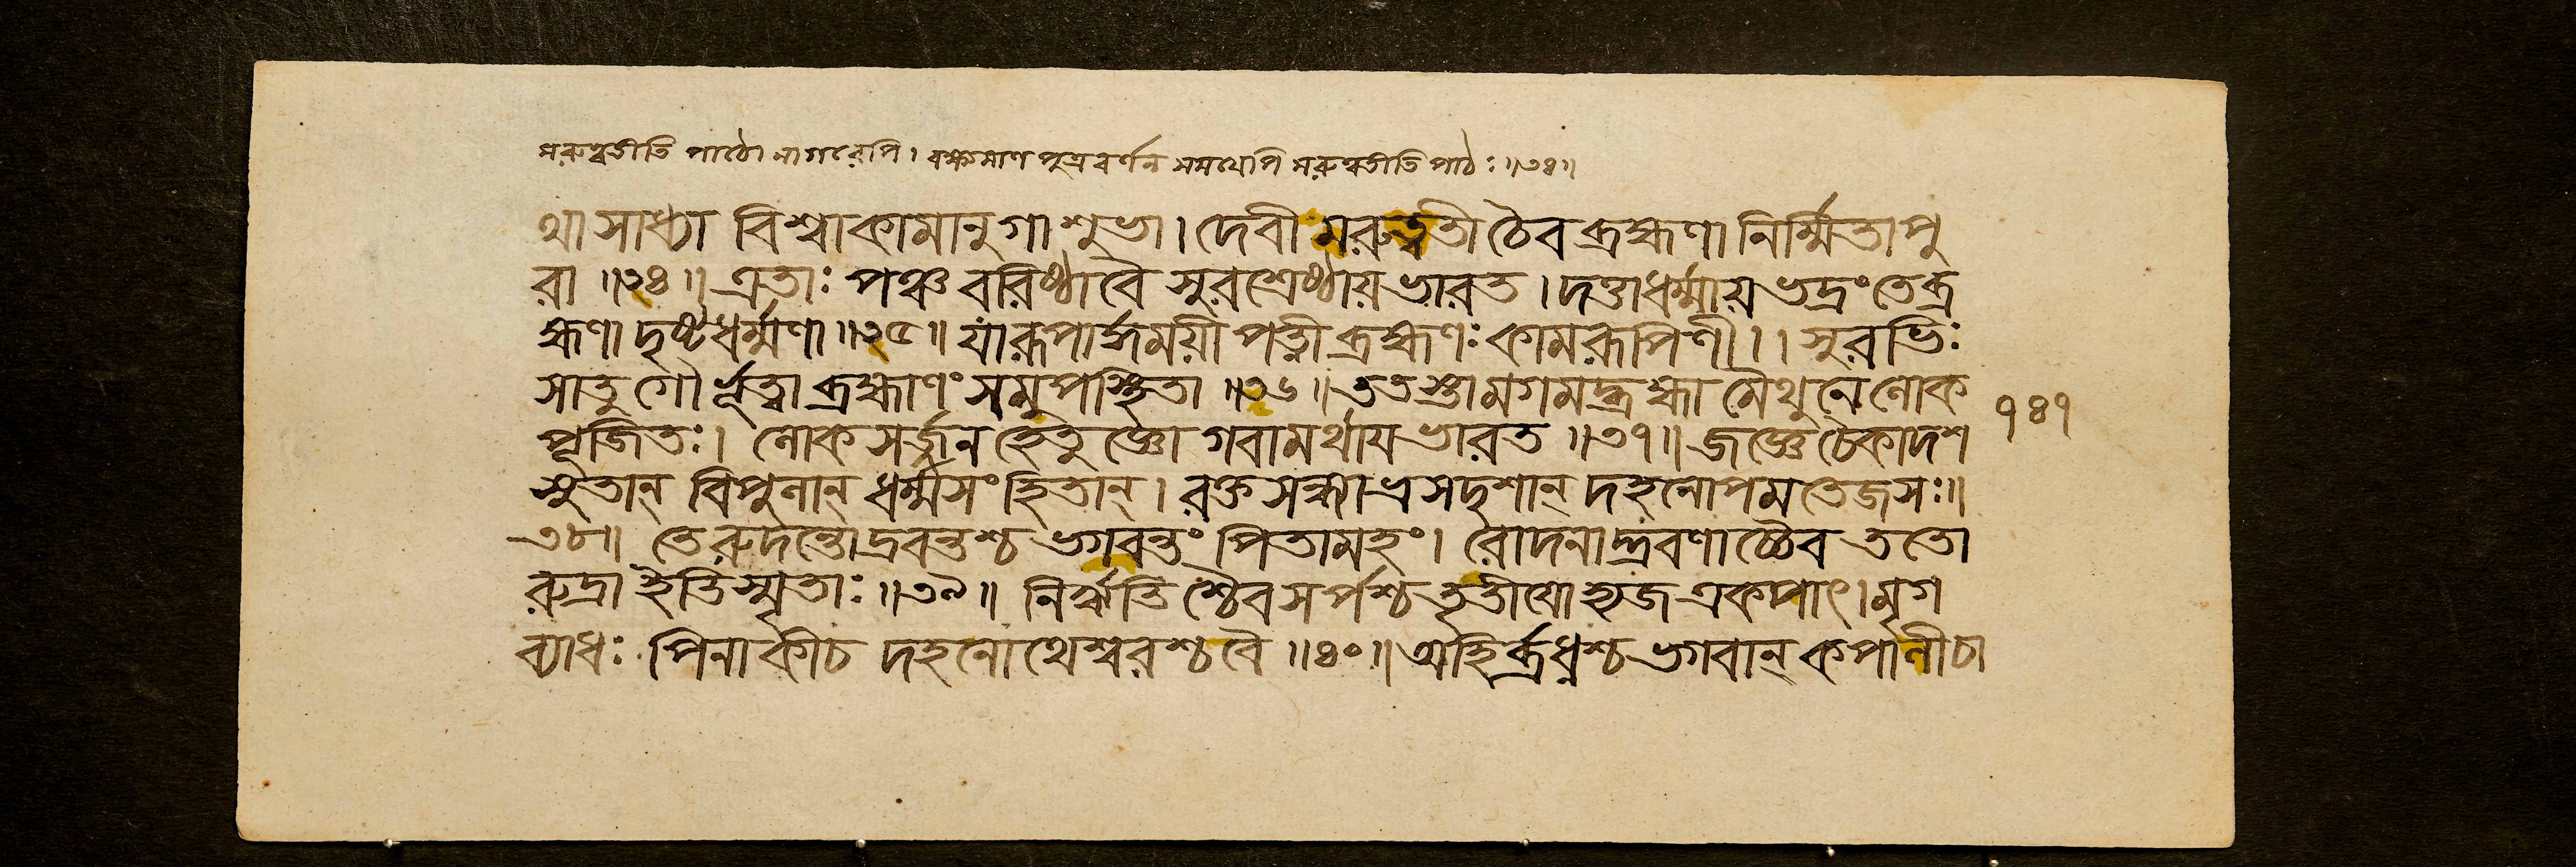 মরুত্বতীতি পাঠো নাগরেপি। বক্ষ্যমাণ পুত্রবর্ণন সময়েপি মরুত্বতীতি পাঠঃ॥৩৪॥
থা সাধ্যা বিশ্বাকামানুগা শুভা। দেবী মরুত্বতী চৈব ব্রহ্মণা নির্ম্মিতা পু
রা॥৩৪॥ এতাঃ পঞ্চ বরিষ্ঠা বৈ সুরশ্রেষ্ঠায় ভারত। দত্তা ধর্ম্মায় ভদ্রং তে ব্র
হ্মণা দৃষ্টধর্ম্মণা॥৩৫॥ যা রূপার্দ্ধময়ী পত্নী ব্রহ্মণঃ কামরূপিণী।। সুরভিঃ
সা তু গৌর্ভূত্বা ব্রহ্মাণং সমুপস্থিতা॥৩৬॥ ততস্তামগমদ্ব্রহ্মা মৈথুনে লোক
পূজিতঃ। লোকসর্জ্জন হেতুজ্ঞো গবামর্থায ভারত॥৩৭॥ জজ্ঞে চৈকাদশ
সুতান্ বিপুলান্ ধর্ম্মসংহিতান্। রক্তসন্ধ্যাভ্রসদৃশান্ দহনোপমতেজসঃ॥
৩৮॥ তে রুদন্তো দ্রবন্তশ্চ ভগবন্তং পিতামহং। রোদনাদ্দ্রবণাচ্চৈব ততো
রুদ্রা ইতি স্মৃতাঃ॥৩৯॥ নির্ঋতি শ্চৈব সর্পশ্চ তৃতীযো হ্যজ একপাৎ। মৃগ
ব্যাধঃ পিনাকী চ দহনোথেশ্বরশ্চ বৈ॥৪০॥ অহির্ব্রধ্নশ্চ ভগবান্ কপালী চা
৭৪৭